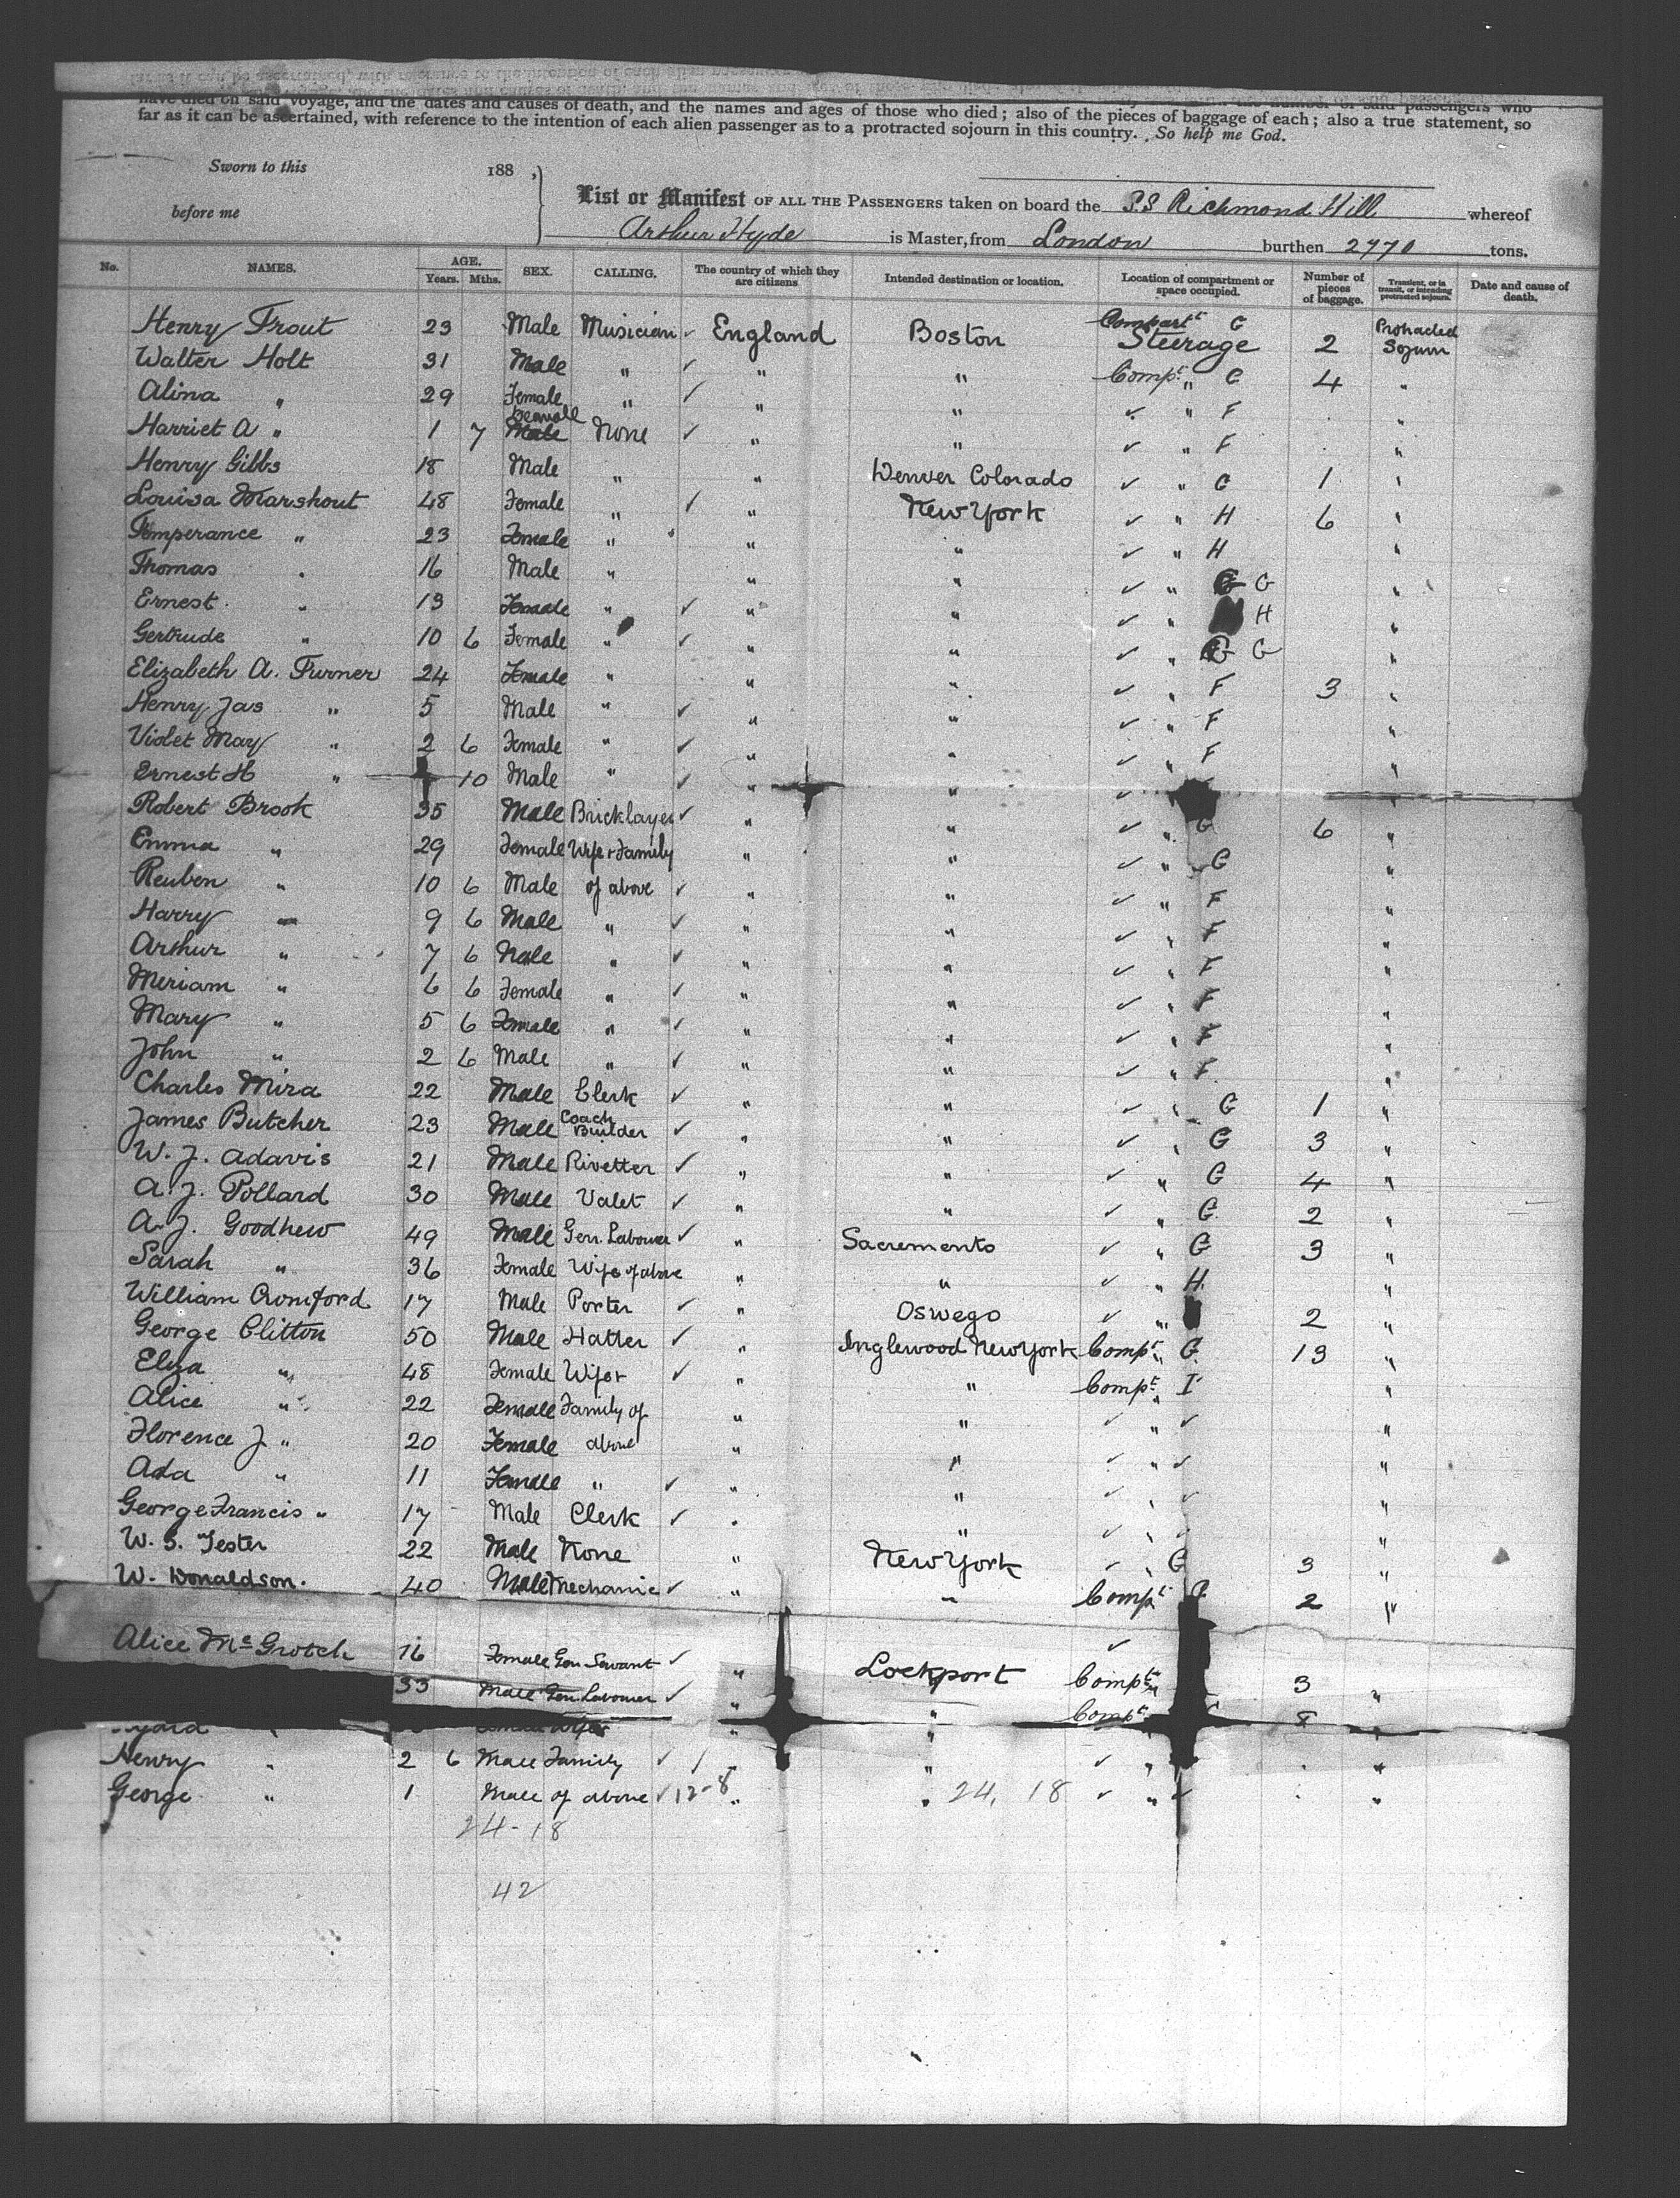 have died on said voyage, and the dates and causes of death, and the names and ages of those who died; also of the pieces of baggage of each; also a true statement, so
far as it can be ascertained, with reference to the intention of each alien passenger as to a protracted sojourn in this country. So help me God.
Sworn to this 188 ,
before me
List or Manifest OF ALL THE PASSENGERS taken on board the S.S Richmond Hill whereof
Arthur Hyde is Master, from London burthen 2770 tons.
No. NAMES. AGE. Years. Mths. SEX. CALLING. The country of which they are citizens Intended destination or location. Location of compartment or space occupied. Number of pieces of baggage. Transient, or in transit, or intending protracted sojourn. Date and cause of death.
Henry Trout 23 Male Musician ✓ England Boston Compart^t G Steerage 2 Protracted Sojurn
Walter Holt 31 Male " ✓ " " Comp^t. " G 4 "
Alina " 29 Female " ✓ " " ✓ " F "
Harriet A " 1 7 Female None ✓ " " ✓ " F "
Henry Gibbs 18 Male " " Denver Colorado ✓ " G 1 "
Louisa Marshout 48 Female " ✓ " New York ✓ " H 6 "
Temperance " 23 Female " " " ✓ " H "
Thomas " 16 Male " " " ✓ " G "
Ernest " 13 Female " ✓ " " ✓ " H "
Gertrude " 10 6 Female " ✓ " " ✓ " G "
Elizabeth A. Turner 24 Female " " " ✓ " F 3 "
Henry Jas " 5 Male " ✓ " " ✓ " F "
Violet May " 2 6 Female " ✓ " " ✓ " F "
Ernest H " 10 Male " ✓ " " ✓ "
Robert Brook 35 Male Bricklayer ✓ " " ✓ " G 6 "
Emma " 29 Female Wife & Family " " ✓ " G "
Reuben " 10 6 Male of above ✓ " " ✓ " F "
Harry " 9 6 Male " ✓ " " ✓ " F "
Arthur " 7 6 Male " ✓ " " ✓ " F "
Miriam " 6 6 Female " ✓ " " ✓ " F "
Mary " 5 6 Female " ✓ " " ✓ " F "
John " 2 6 Male " ✓ " " ✓ " F "
Charles Mira 22 Male Clerk ✓ " " ✓ " G 1 "
James Butcher 23 Male Coach Builder ✓ " " ✓ " G 3 "
W. J. Adavis 21 Male Rivetter ✓ " " ✓ " G 4 "
A. J. Pollard 30 Male Valet ✓ " " ✓ " G 2 "
A. J. Goodhew 49 Male Gen. Labourer ✓ " Sacremento ✓ " G 3 "
Sarah " 36 Female Wife of above " " ✓ " H "
William Cromford 17 Male Porter ✓ " Oswego ✓ " 2 "
George Clitton 50 Male Hatter ✓ " Inglewood New York Comp^t. " G 13 "
Eliza " 48 Female Wife & ✓ " " Comp^t. " I "
Alice " 22 Female Family of " " ✓ " ✓ "
Florence J " 20 Female above " " ✓ " ✓ "
Ada " 11 Female " ✓ " " ✓ " ✓ "
George Francis " 17 Male Clerk ✓ " " ✓ " ✓ "
W. S. Tester 22 Male None " New York ✓ " G 3 "
W. Donaldson. 40 Male Mechanic ✓ " " Comp^t. G 2 "
Alice McGrotch 16 Female Gen Servant ✓ " Lockport Comp^t. " 3 "
33 Male Gen Labourer ✓ " " Comp^t.
Henry " 2 6 Male Family ✓ " " ✓ " "
George " 1 Male of above ✓ 12-8 " " 24, 18 ✓ " ✓ "
24-18
42